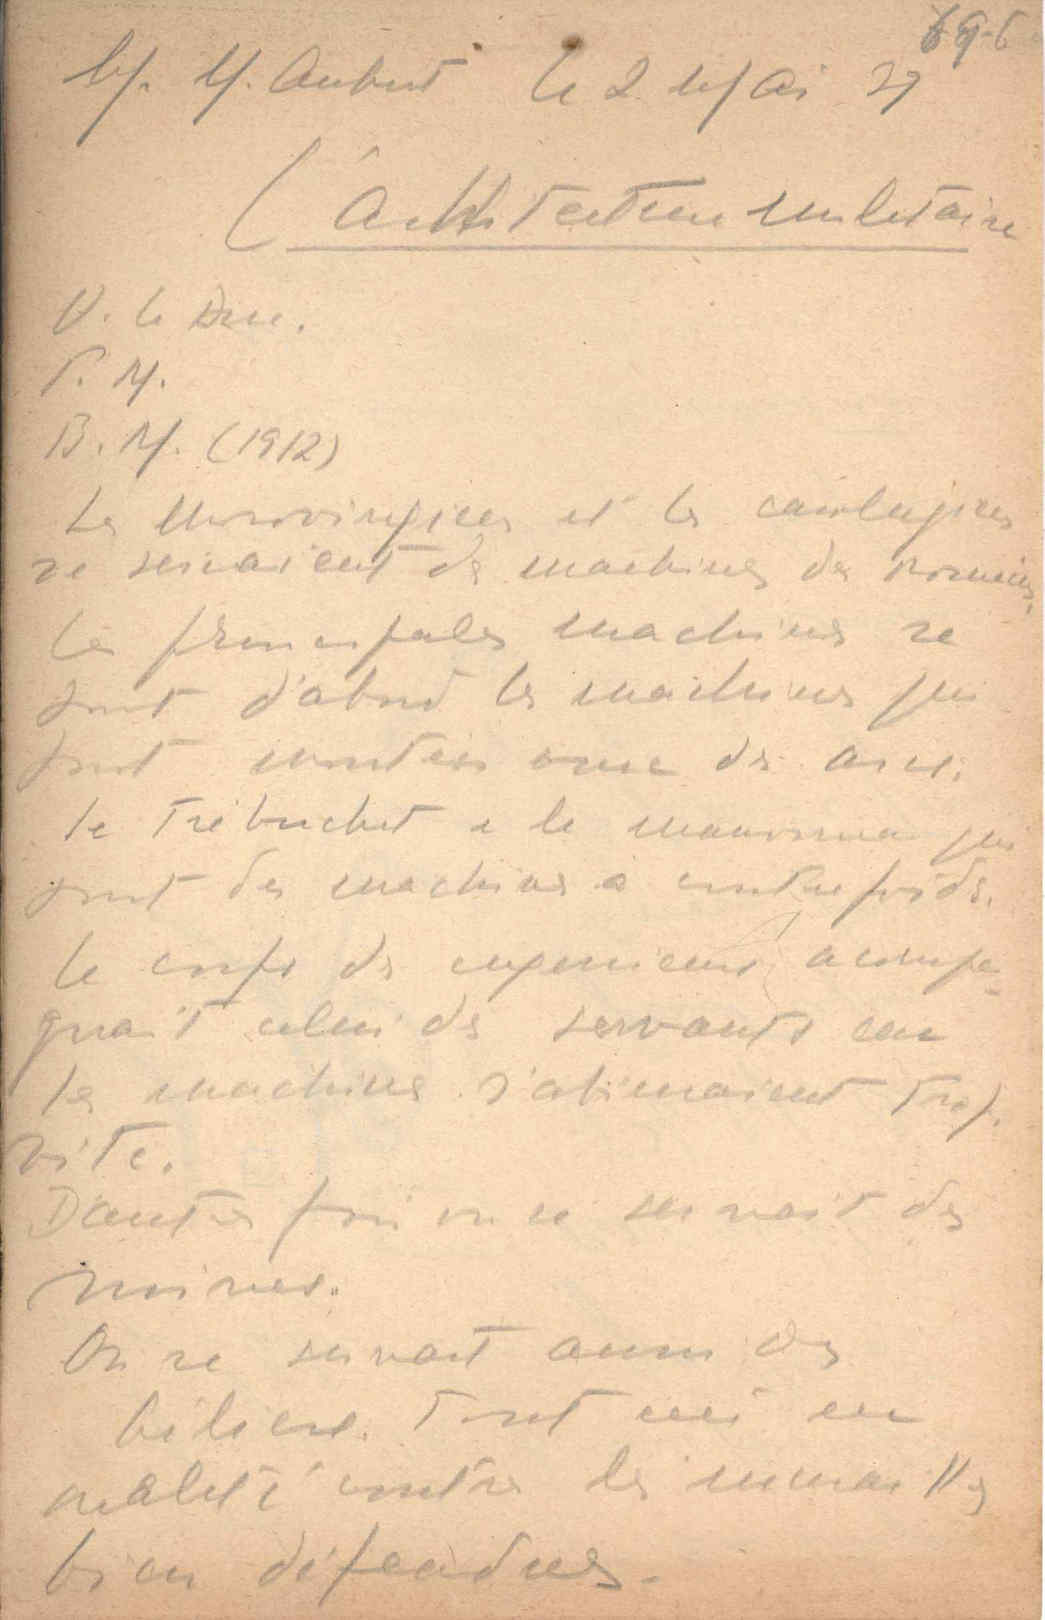 69-6
M. M. Aubert le 2 Mai 27
L'architecture militaire
V. le Duc.
P. M.
B. M. (1912)
Les Merovingiens et les carolingiens
se servaient des machines des romains.
Les principales machines se
sont d'abord les machines qui
sont montées sur des
le trébuchet et le qui
sont des machines à contrepoids.
le corps des ingenieurs accompa-
gnait celui des servants car
les machines s'abimaient trop
vite.
D'autres fois on se servait des
mines.
On se servait aussi des
béliers. Tout ceci en
realité contre les murailles
bien défendues.